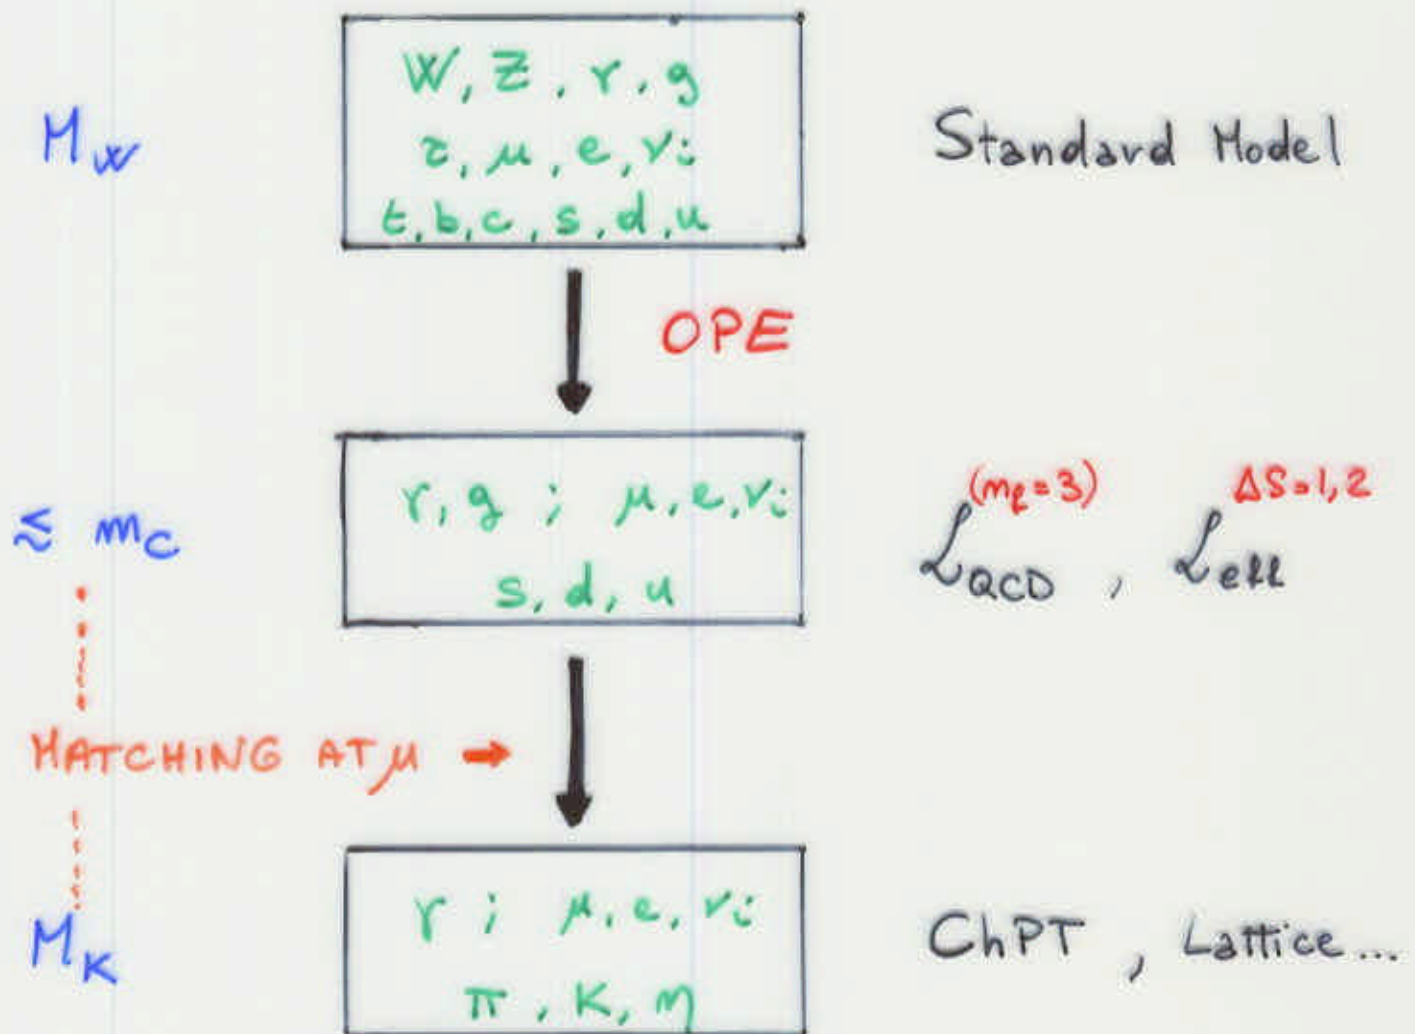 W, Z, γ, g
M_W
τ, μ, e, ν_i
Standard Model
t, b, c, s, d, u
OPE
≲ m_c
γ, g ; μ, e, ν_i
s, d, u
L_QCD^(n_f=3) , L_eff^ΔS=1,2
MATCHING AT μ →
M_K
γ ; μ, e, ν_i
π, K, η
ChPT , Lattice...